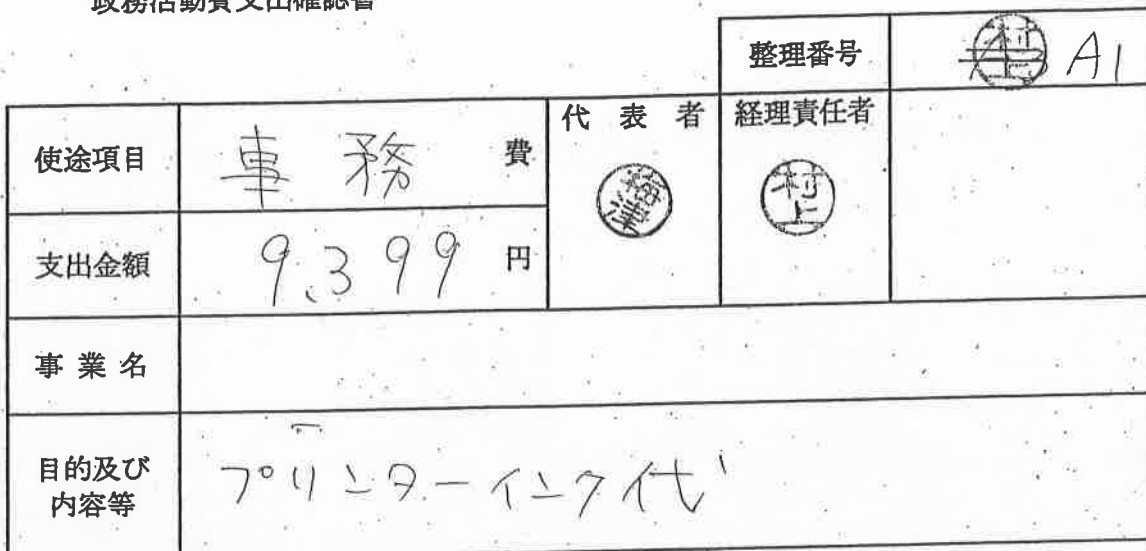 政務活動費支出確認書
整理番号 A1
使途項目 事務費
代表者 経理責任者
梅津 村上
支出金額 9,399円
事業名
目的及び内容等 プリンターインク代